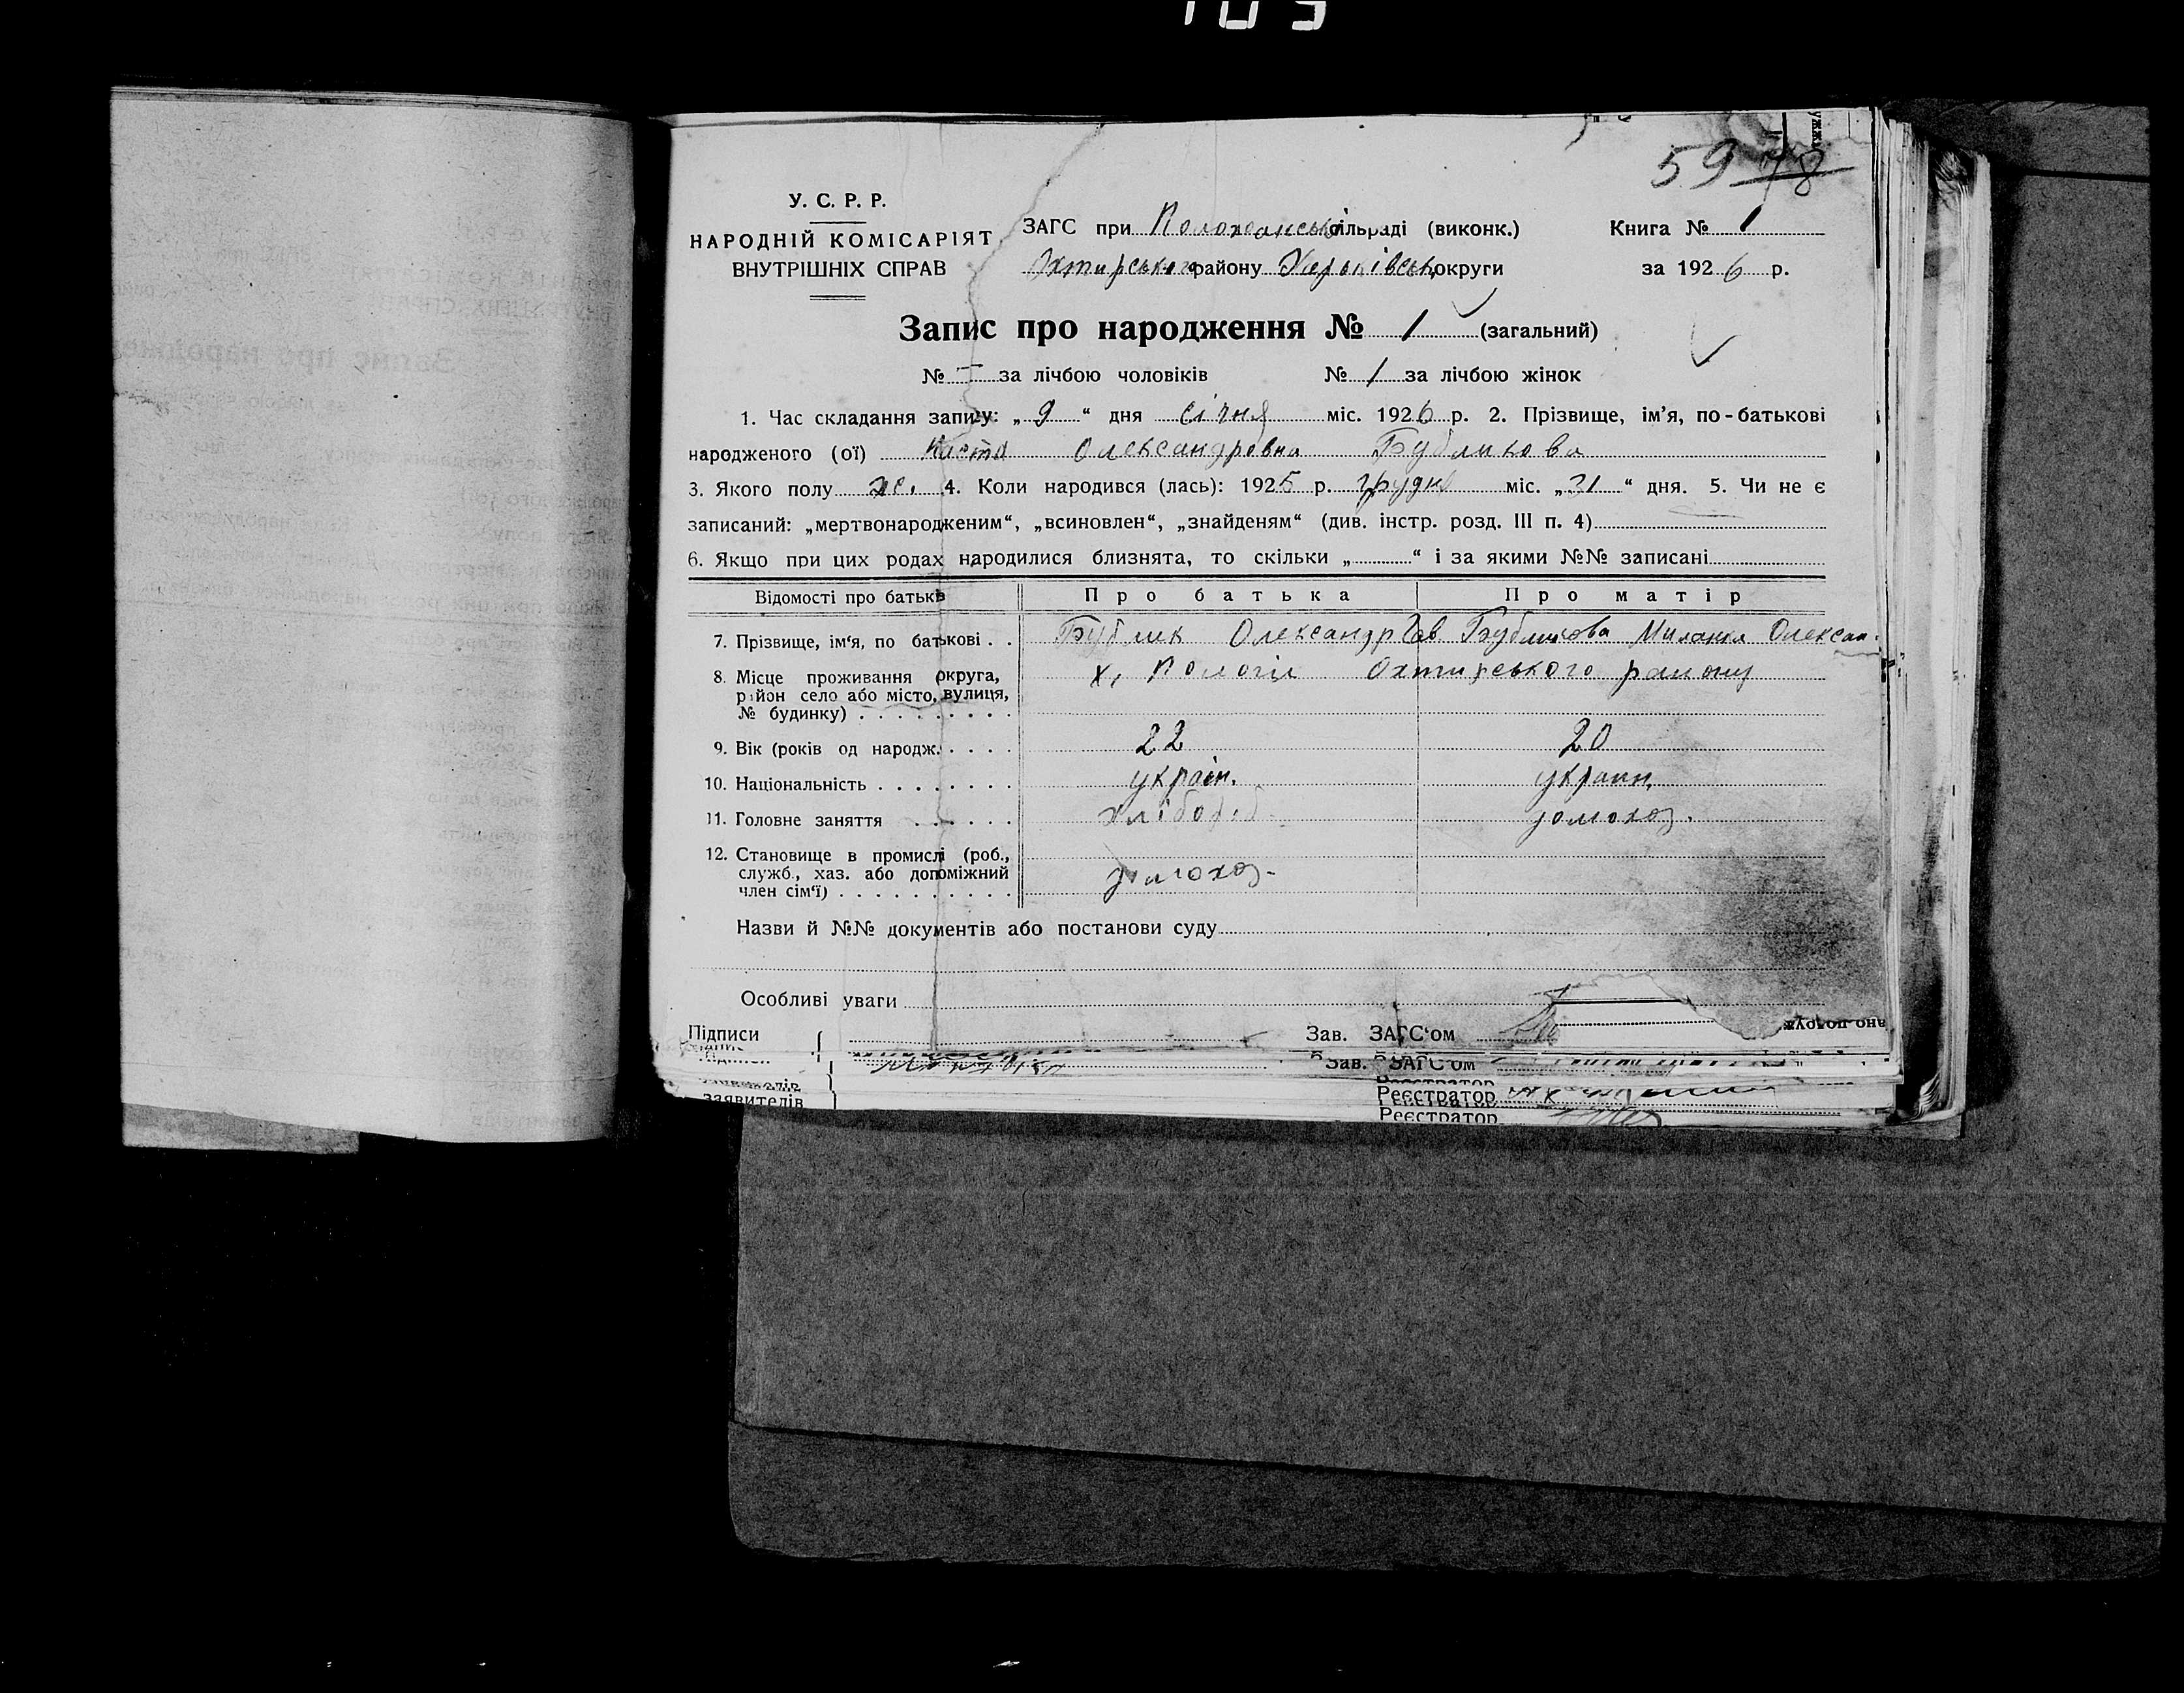 59 78
У. С. Р. Р.
НАРОДНІЙ КОМІСАРІЯТ
ВНУТРІШНІХ СПРАВ
ЗАГС при сільраді (виконк.)
Охтирського району Харьківськ округи
Книга № 1
за 1926 р.
Запис про народження № 1 (загальний)
№ за лічбою чоловіків № 1 за лічбою жінок
1. Час складання запису: „ 9 “ дня січня міс. 1926 р. 2. Прізвище, ім'я, по-батькові
народженого (ої) Настя Олександровна Бубликова
3. Якого полу ж. 4. Коли народився (лась): 1925 р. грудня міс. „ 31 “ дня. 5. Чи не є
записаний: „мертвонародженим“, „всиновлен“, „знайденям“ (див. інстр. розд. III п. 4)
6. Якщо при цих родах народилися близнята, то скільки „ “ і за якими №№ записані
Відомості про батьків Про батька Про матір
7. Прізвище, ім'я, по батькові . . Бублик Олександр Бубликова Олексан.
8. Місце проживання округа, х. Пологи Охтирського району
район село або місто, вулиця,
№ будинку) . . . . . . . . .
9. Вік (років од народж. . . . . 22 20
10. Національність . . . . . . . . україн. украин.
11. Головне заняття . . . . . . хлібороб домохоз.
12. Становище в промислі (роб.,
служб., хаз. або допоміжний домохоз.
член сім'ї) . . . . . . . . . .
Назви й №№ документів або постанови суду
Особливі уваги
Підписи { Зав. ЗАГС'ом
Зав. ЗАГС'ом
заявителів } Реєстратор
Реєстратор